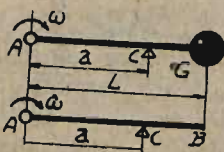 ω
A a C G
L
ω
A a C B